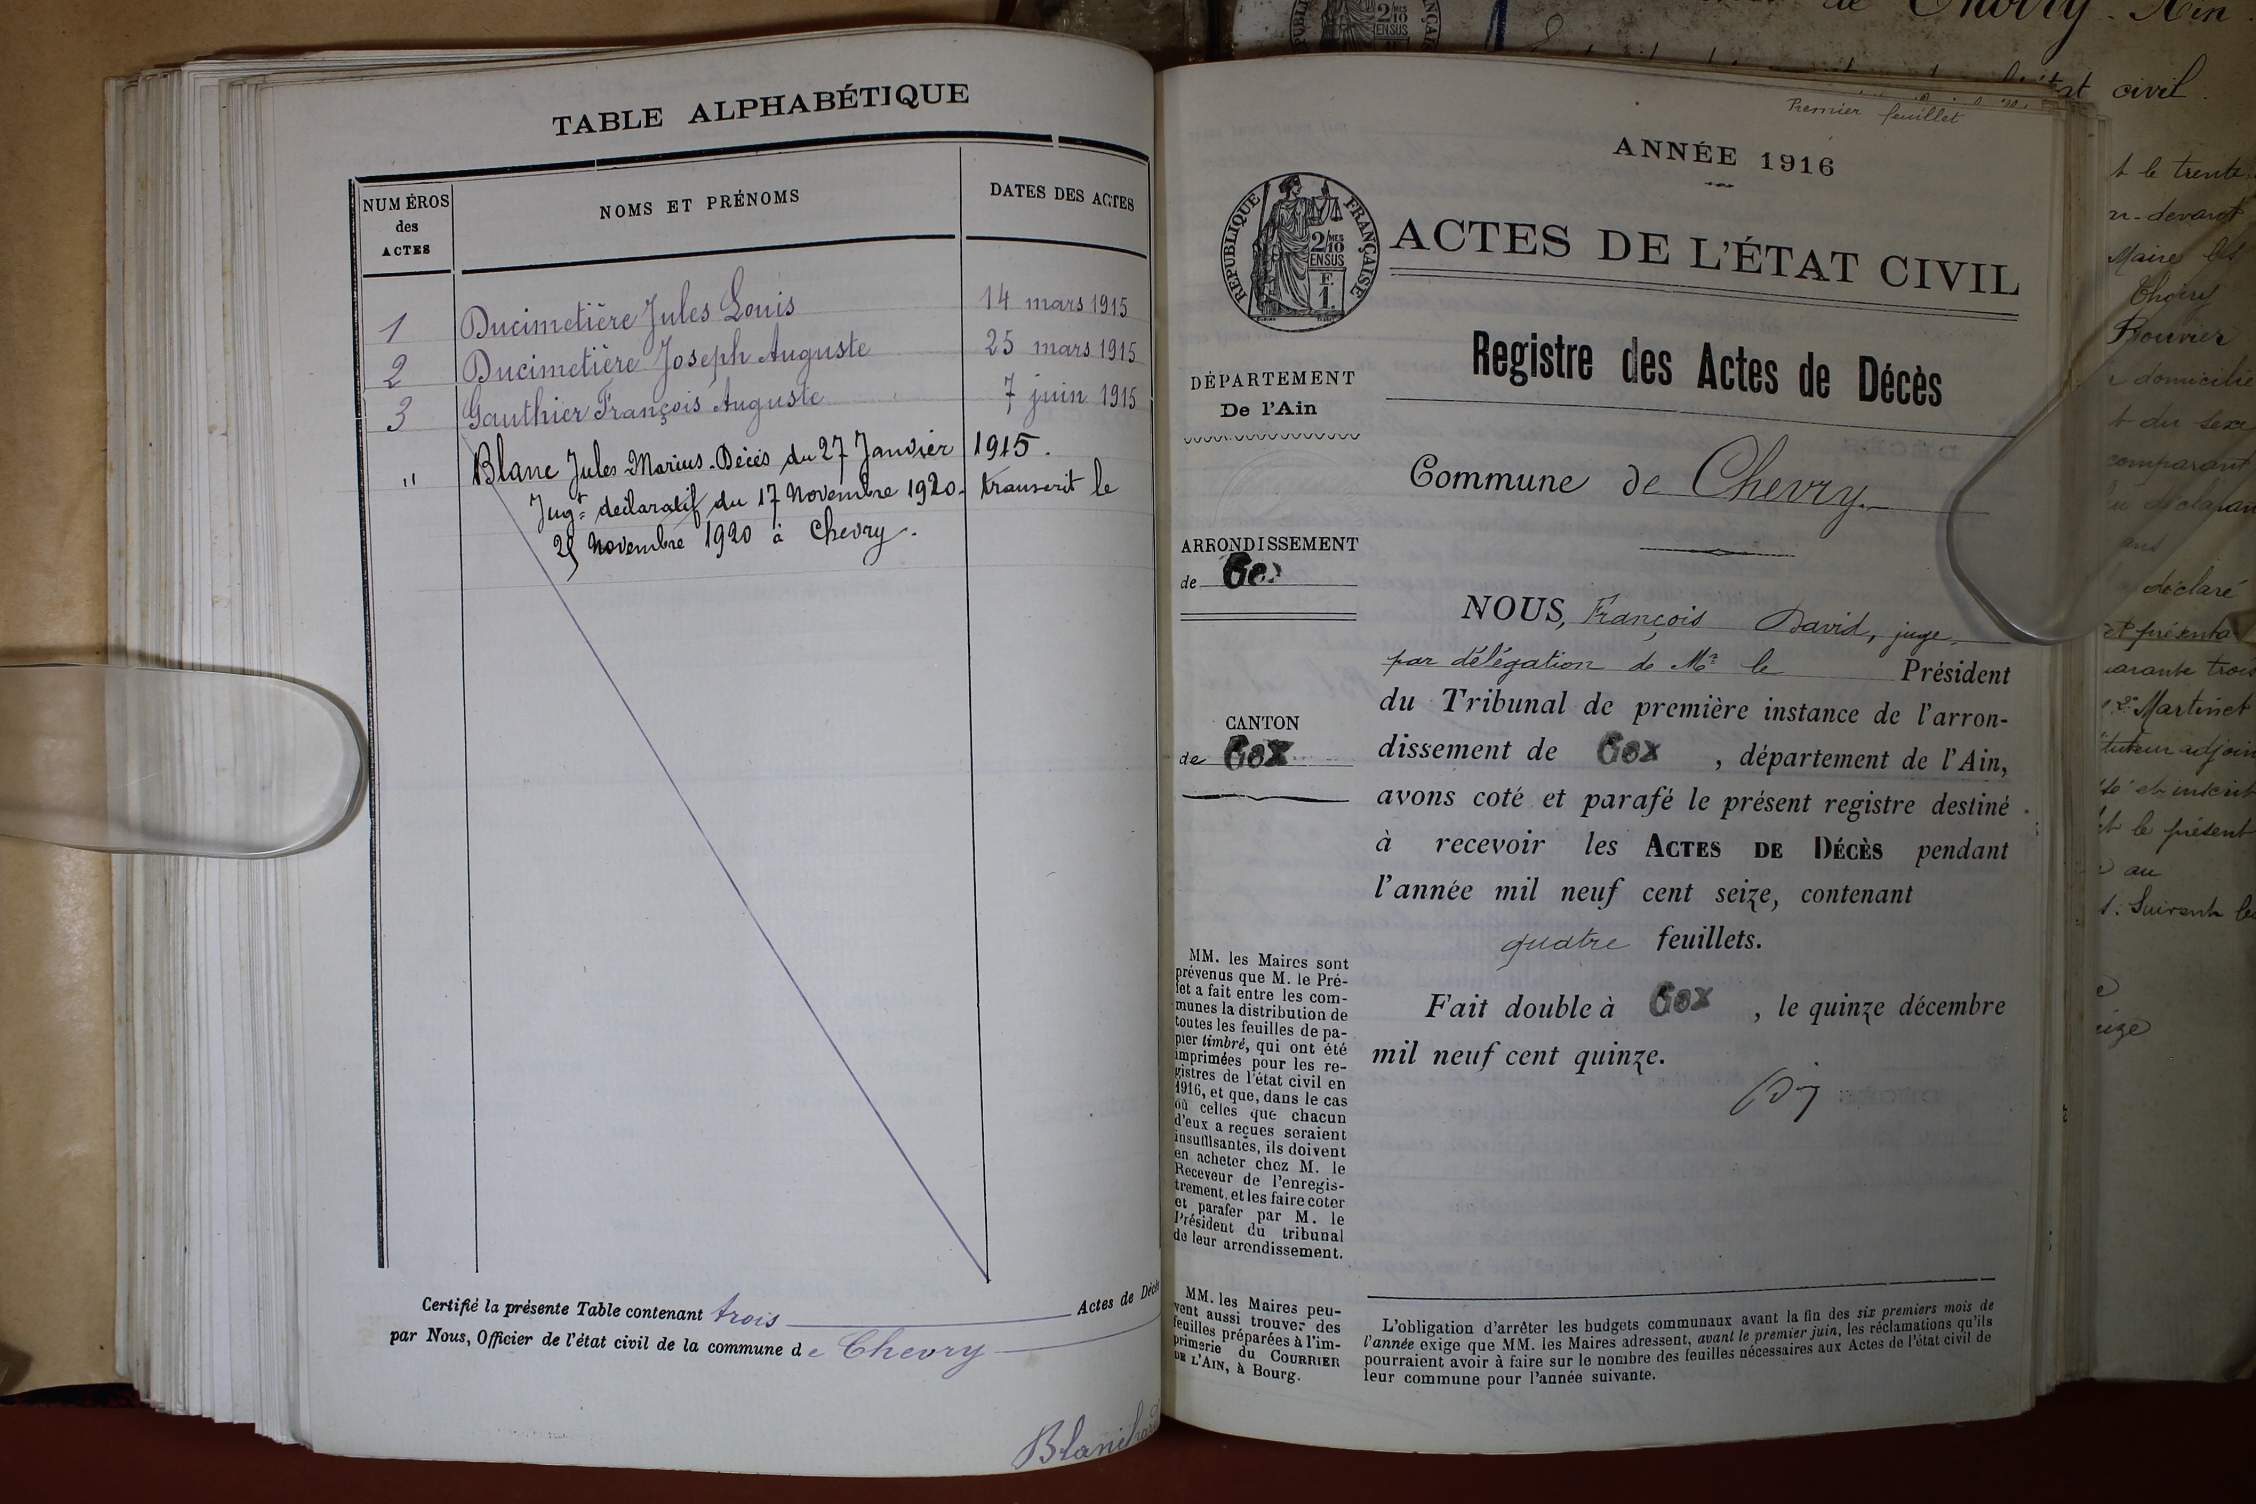 TABLE ALPHABÉTIQUE
NUMÉROS
des
ACTES
NOMS ET PRÉNOMS
DATES DES ACTES
1 Ducimetière Jules Louis 14 mars 1915
2 Ducimetière Joseph Auguste 25 mars 1915
3 Gauthier François Auguste 7 juin 1915
" Blanc Jules Marius. Décès du 27 Janvier 1915.
Jugt déclaratif du 17 Novembre 1920. transcrit le
Novembre 1920 à Chevry.
Certifié la présente Table contenant trois Actes de Décès
par Nous, Officier de l'état civil de la commune de Chevry
Premier feuillet
ANNÉE 1916
RÉPUBLIQUE FRANÇAISE
2/10 MES
EN SUS
F.
1.
ACTES DE L'ÉTAT CIVIL
Registre des Actes de Décès
DÉPARTEMENT
De l'Ain
Commune de Chevry
ARRONDISSEMENT
de Gex
CANTON
de Gex
NOUS, François David, juge
par délégation de Mr le Président
du Tribunal de première instance de l'arron-
dissement de Gex, département de l'Ain,
avons coté et parafé le présent registre destiné
à recevoir les ACTES DE DÉCÈS pendant
l'année mil neuf cent seize, contenant
quatre feuillets.
Fait double à Gex, le quinze décembre
mil neuf cent quinze.
MM. les Maires sont
prévenus que M. le Pré-
fet a fait entre les com-
munes la distribution de
toutes les feuilles de pa-
pier timbré, qui ont été
imprimées pour les re-
gistres de l'état civil en
1916, et que, dans le cas
où celles que chacun
d'eux a reçues seraient
insuffisantes, ils doivent
en acheter chez M. le
Receveur de l'enregis-
trement, et les faire coter
et parafer par M. le
Président du tribunal
de leur arrondissement.
MM. les Maires peu-
vent aussi trouver des
feuilles préparées à l'im-
primerie du COURRIER
DE L'AIN, à Bourg.
L'obligation d'arrêter les budgets communaux avant la fin des six premiers mois de
l'année exige que MM. les Maires adressent, avant le premier juin, les réclamations qu'ils
pourraient avoir à faire sur le nombre des feuilles nécessaires aux Actes de l'état civil de
leur commune pour l'année suivante.
de Chevry. Ain.
civil.
t le trente
devant
Maire les
Thoiry
Bouvier
domicilié
t du sexe
comparant
déclaré
présenta
quarante trois
2° Martinet
adjoin
et inscrit
t le présent
au
Suivent les